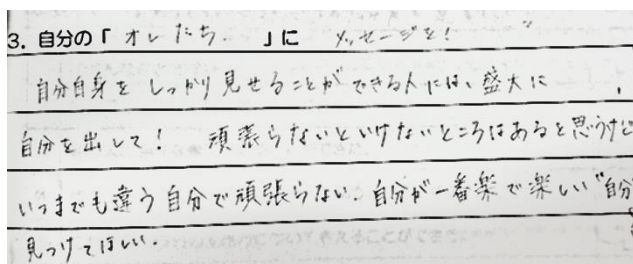 3. 自分の「オレたち」に メッセージを!
自分自身をしっかり見せることができる人には、盛大に
自分を出して! 頑張らないといけないところはあると思うけど
いつまでも違う自分で頑張らない。自分が一番楽で楽しい"自分
見つけてほしい。